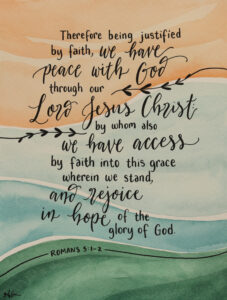 Therefore being justified
by faith, we have
peace with God
through our
Lord Jesus Christ
by whom also
we have access
by faith into this grace
wherein we stand,
and rejoice
in hope of the
glory of God.
ROMANS 5:1-2